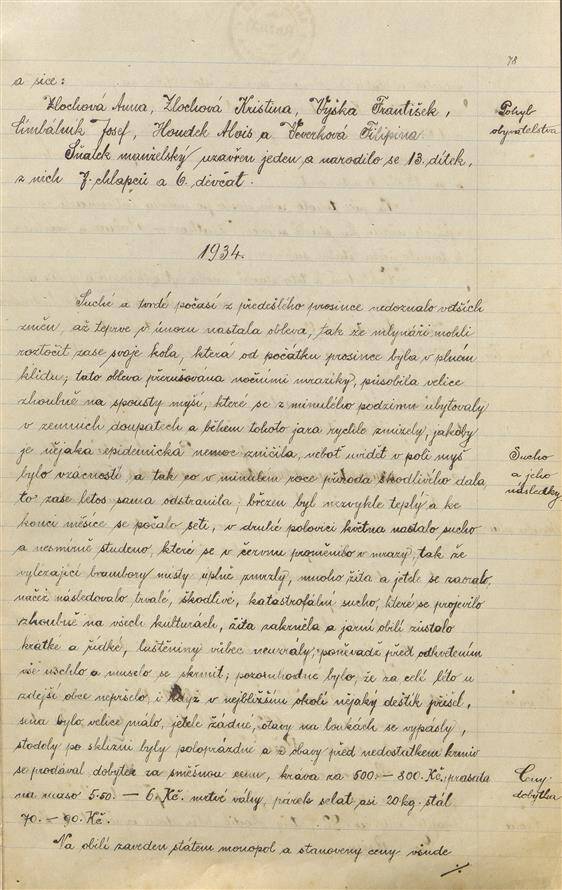 78
a sice:
Zlochová Anna, Zlochová Kristina, Vyška František,
Cimbálník Josef, Houdek Alois a Veverková Filipina.
Sňatek manželský uzavřen jeden a narodilo se 13. dítek,
z nich 7. chlapců a 6. děvčat.
Pohyb
obyvatelstva
1934.
Suché a tvrdé počasí z předešlého prosince nedoznalo větších
změn, až teprve v únoru nastala obleva, tak že mlynáři mohli
roztočit zase svoje kola, která od počátku prosince byla v plném
klidu; tato obleva přerušována nočními mrazíky, působila velice
zhoubně na spousty myší, které se z minulého podzimu ubytovaly
v zemních doupatech a během tohoto jara rychle zmizely, jakoby
je nějaká epidemická nemoc zničila, neboť uvidět v poli myš
bylo vzácností a tak co v minulém roce příroda škodlivého dala,
to zase letos sama odstranila; březen byl nezvykle teplý a ke
konci měsíce se počalo seti, v druhé polovici května nastalo sucho
a nesmírně studeno, které se v červnu proměnilo v mrazy, tak že
vylézající brambory místy úplně zmrzly, mnoho žita a jetele se
načež následovalo trvalé, škodlivé, katastrofální sucho, které se projevilo
zhoubně na všech kulturách, žita zakrněla a jarní obilí zůstalo
krátké a řídké, luštěniny vůbec neuzrály, poněvadž před odkvetením
vše uschlo a muselo se skrmit; pozoruhodné bylo, že za celé léto u
zdejší obce nepršelo, i když v nejbližším okolí nějaký deštík přišel,
sena bylo velice málo, jetele žádné, otavy na loukách se vypásly,
stodoly po sklizni byly poloprázdné a z obavy před nedostatkem krmiv
se prodával dobytek za směšnou cenu, kráva za 500.- 800.Kč, prasata
na maso 5.50.- 6.Kč. mrtvé váhy, párek selat asi 20 kg. stál
70.- 90.Kč.
Na obilí zaveden státem monopol a stanoveny ceny všude
Sucho
a jeho
následky
Ceny
dobytka